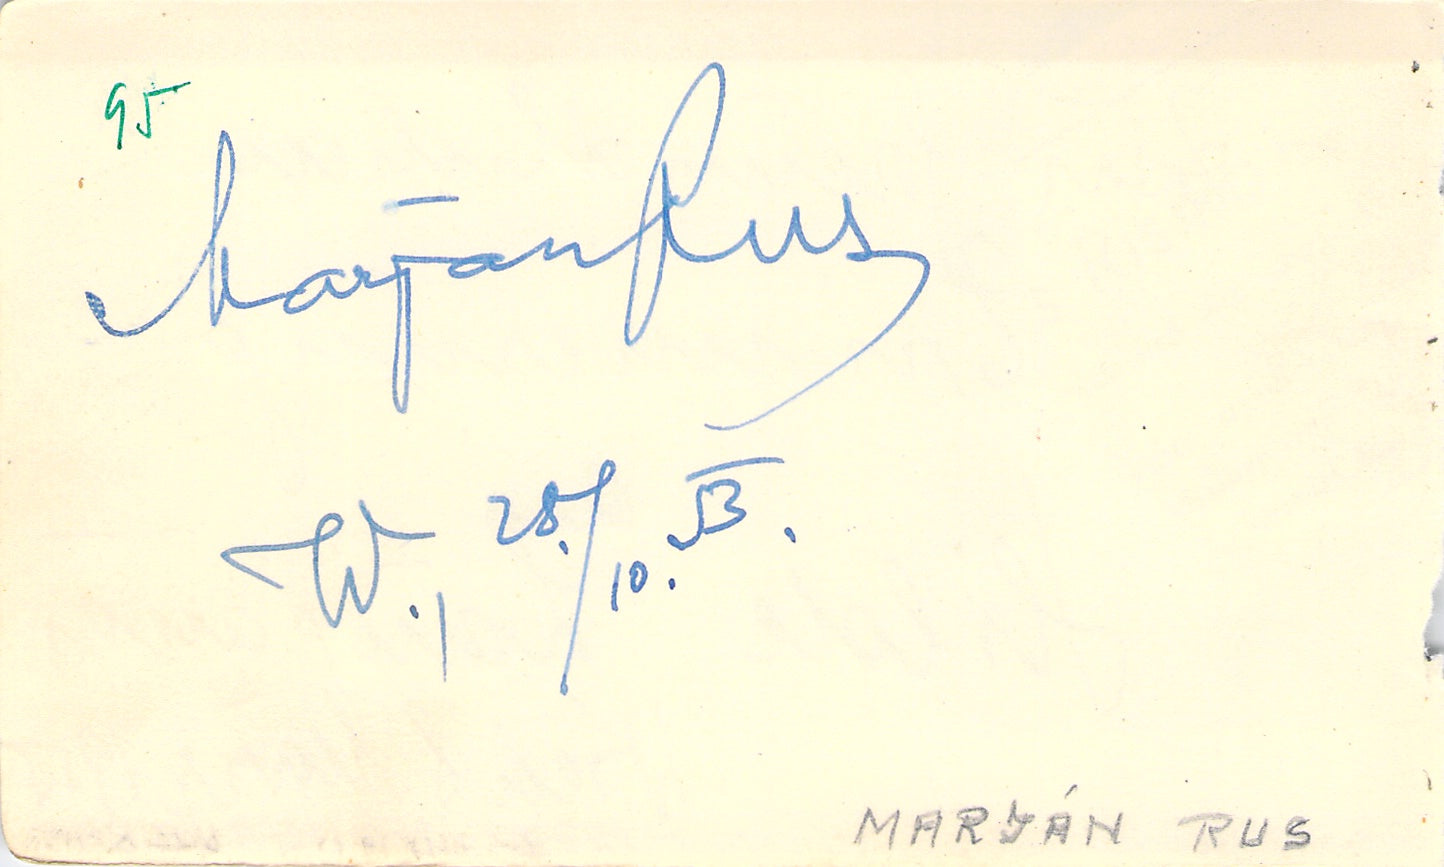 95
Marjan Rus
W., 28./10. 53.
MARJÁN RUS